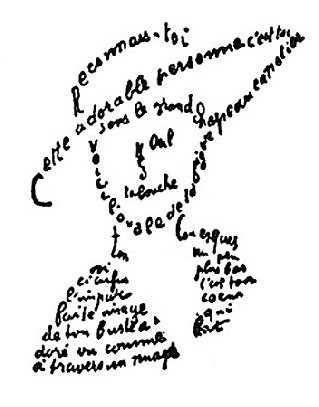 Reconnais-toi
Cette adorable personne c'est toi
Sous le grand chapeau canotier
Œil
Nez
La bouche
Voici l'ovale de ta figure
Ton
cou exquis
voi
ci enfin
l'impar
faite image
de ton buste a
doré vu comme
à travers un nuage
un peu
plus bas
c'est ton
coeur
qui
bat